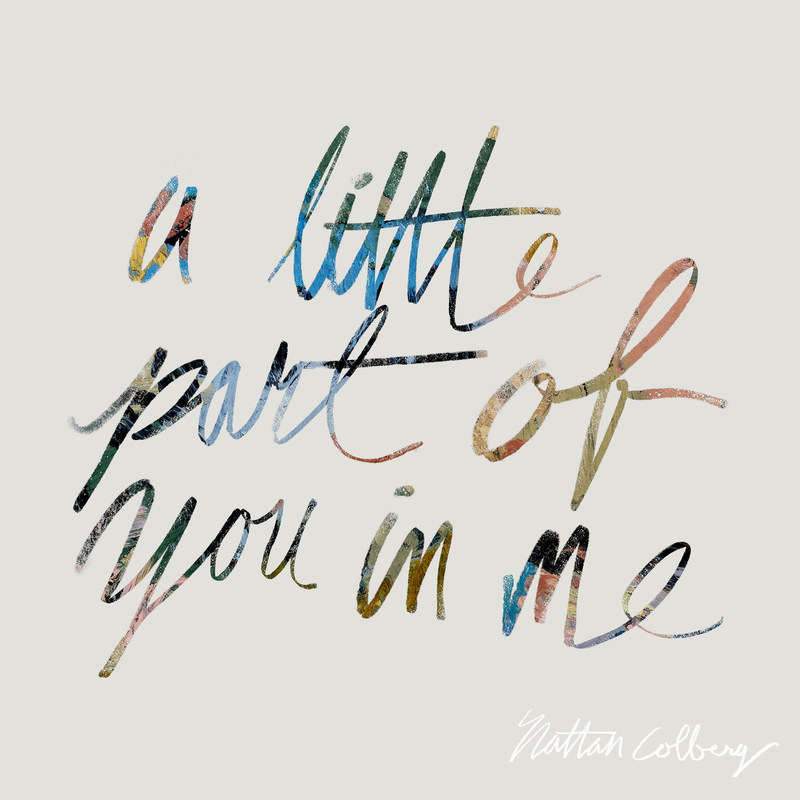 a little
part of
you in me
Nattan Colberg